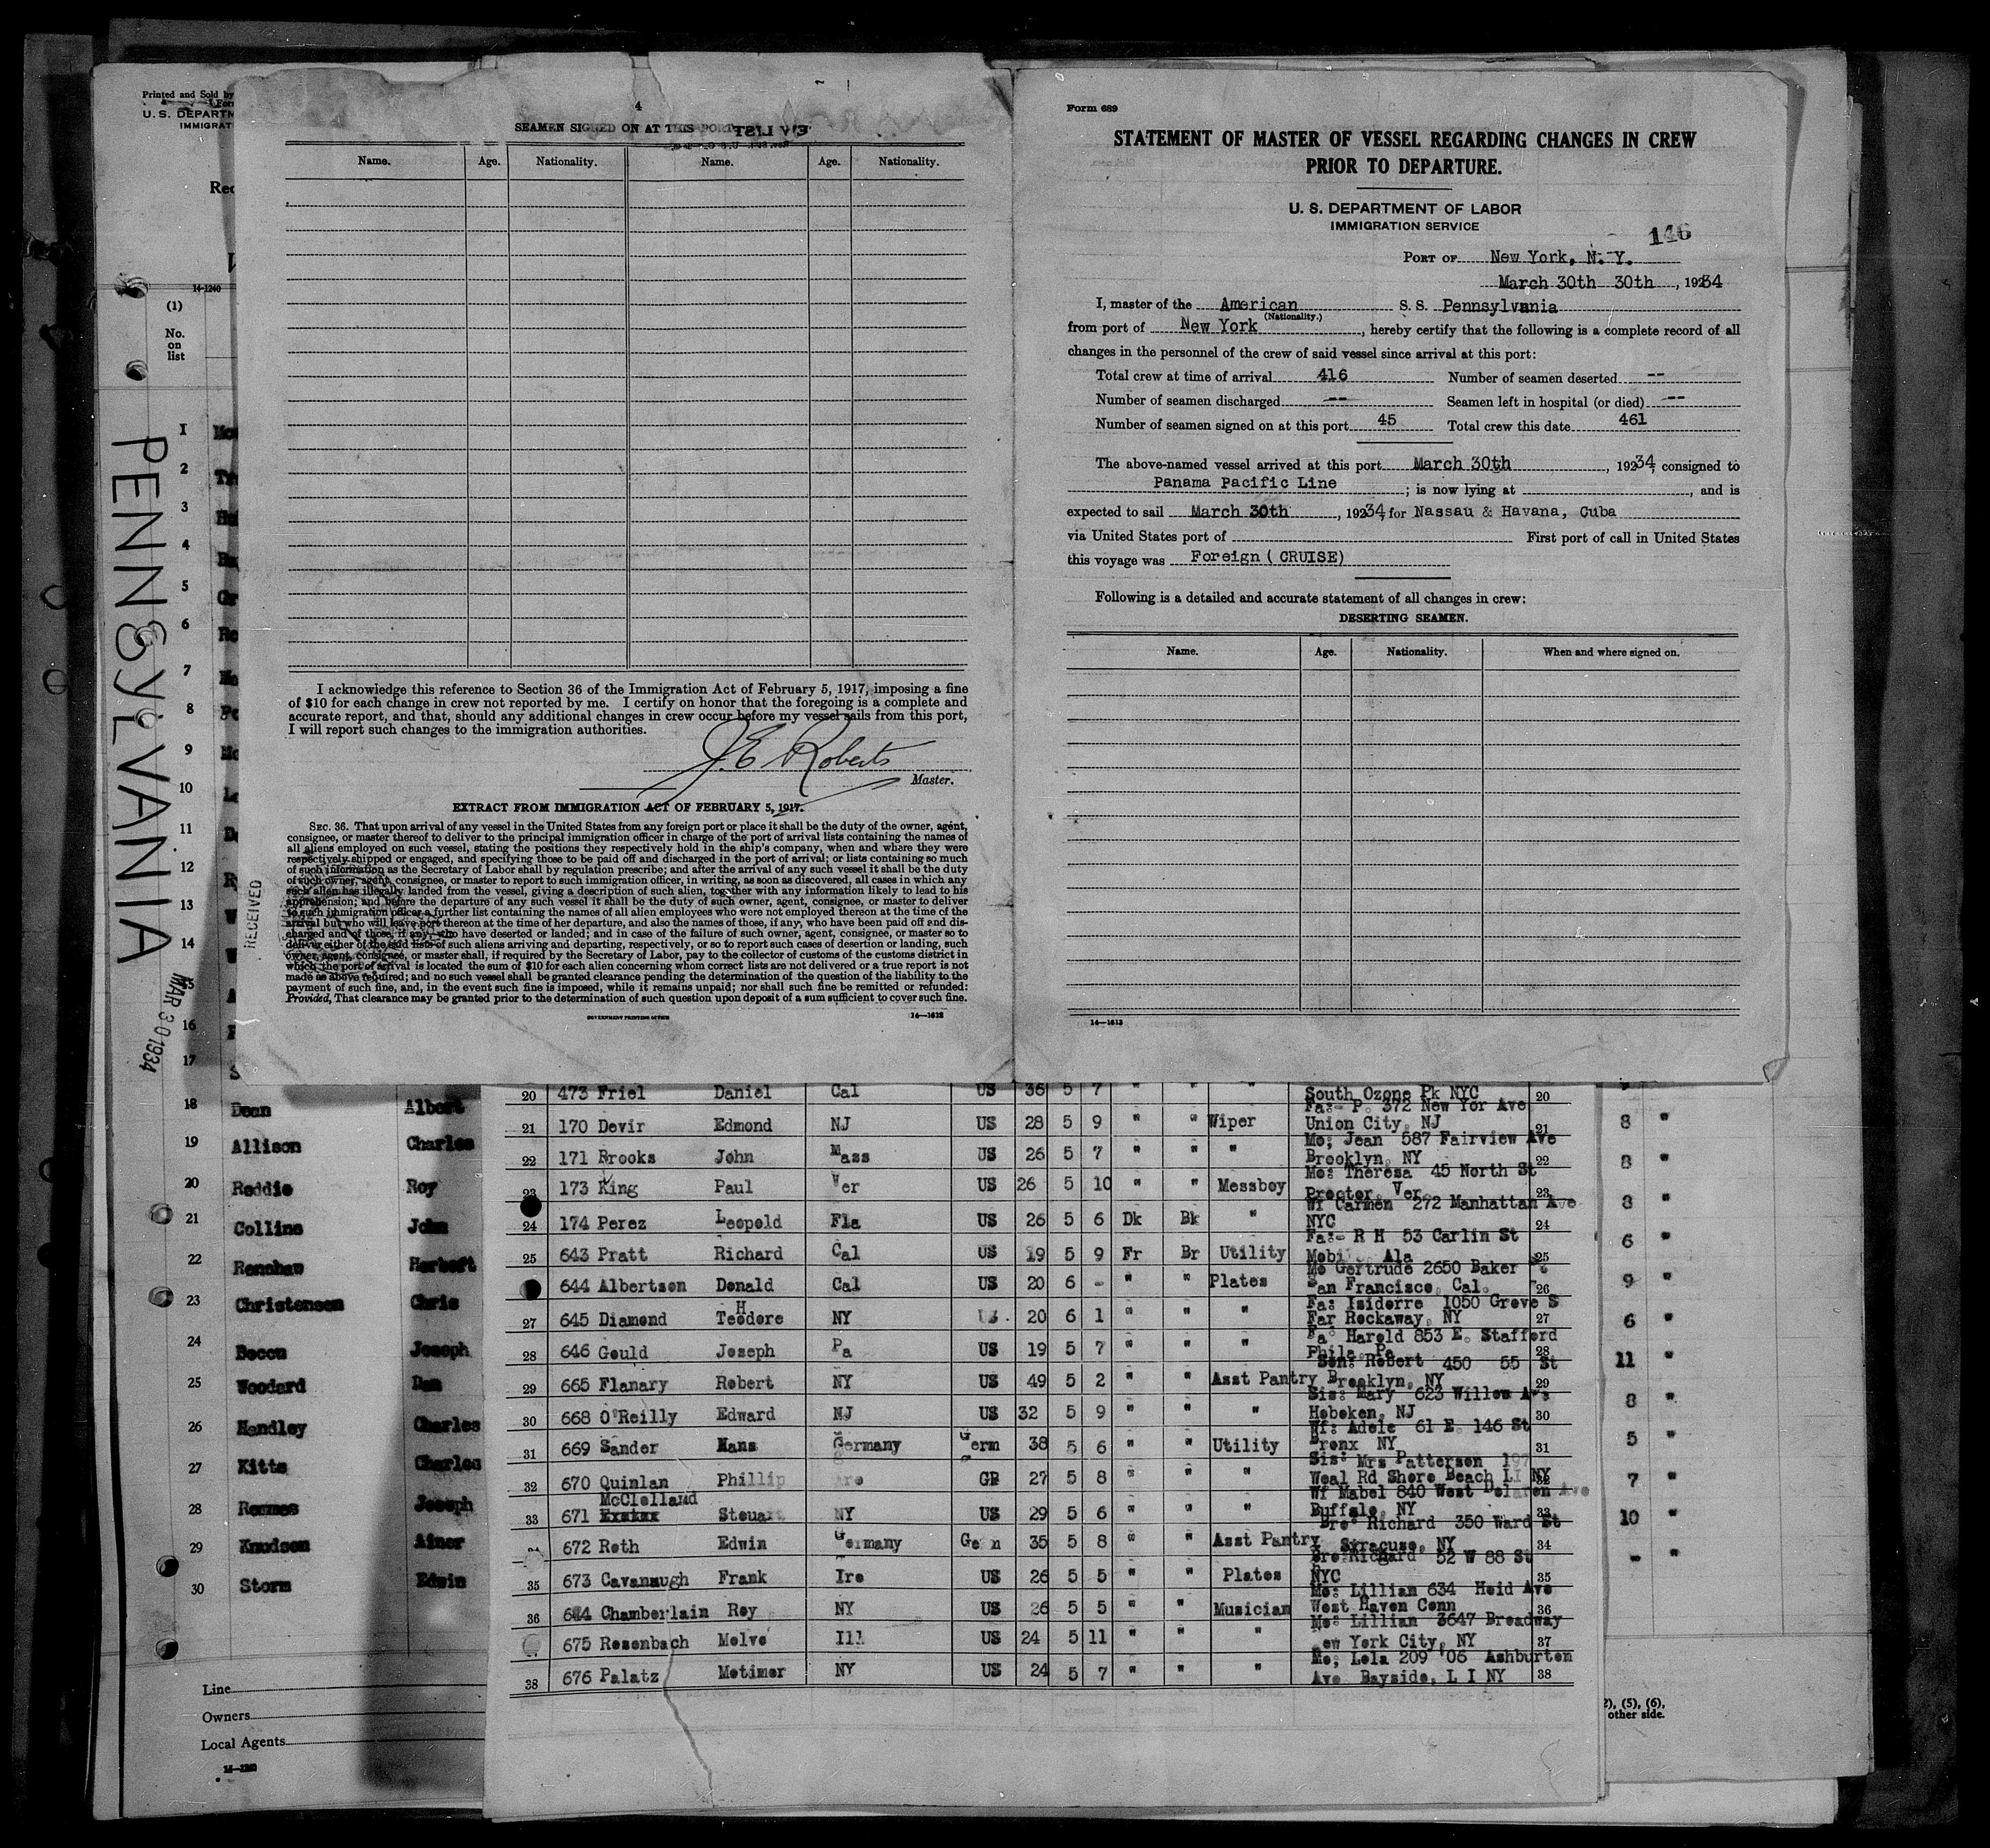 4
SEAMEN SIGNED ON AT THIS PORT
Name. Age. Nationality. Name. Age. Nationality.
I acknowledge this reference to Section 36 of the Immigration Act of February 5, 1917, imposing a fine
of $10 for each change in crew not reported by me. I certify on honor that the foregoing is a complete and
accurate report, and that, should any additional changes in crew occur before my vessel sails from this port,
I will report such changes to the immigration authorities.
J.E. Roberts
Master.
EXTRACT FROM IMMIGRATION ACT OF FEBRUARY 5, 1917.
SEC. 36. That upon arrival of any vessel in the United States from any foreign port or place it shall be the duty of the owner, agent,
consignee, or master thereof to deliver to the principal immigration officer in charge of the port of arrival lists containing the names of
all aliens employed on such vessel, stating the positions they respectively hold in the ship's company, when and where they were
respectively shipped or engaged, and specifying those to be paid off and discharged in the port of arrival; or lists containing so much
of such information as the Secretary of Labor shall by regulation prescribe; and after the arrival of any such vessel it shall be the duty
of such owner, agent, consignee, or master to report to such immigration officer, in writing, as soon as discovered, all cases in which any
such alien has illegally landed from the vessel, giving a description of such alien, together with any information likely to lead to his
apprehension; and before the departure of any such vessel it shall be the duty of such owner, agent, consignee, or master to deliver
to such immigration officer a further list containing the names of all alien employees who were not employed thereon at the time of the
arrival but who will leave port thereon at the time of her departure, and also the names of those, if any, who have been paid off and dis-
charged and of those, if any, who have deserted or landed; and in case of the failure of such owner, agent, consignee, or master so to
deliver either of the said lists of such aliens arriving and departing, respectively, or so to report such cases of desertion or landing, such
owner, agent, consignee, or master shall, if required by the Secretary of Labor, pay to the collector of customs of the customs district in
which the port of arrival is located the sum of $10 for each alien concerning whom correct lists are not delivered or a true report is not
made as above required; and no such vessel shall be granted clearance pending the determination of the question of the liability to the
payment of such fine, and, in the event such fine is imposed, while it remains unpaid; nor shall such fine be remitted or refunded:
Provided, That clearance may be granted prior to the determination of such question upon deposit of a sum sufficient to cover such fine.
GOVERNMENT PRINTING OFFICE 14—1613
Form 689
STATEMENT OF MASTER OF VESSEL REGARDING CHANGES IN CREW
PRIOR TO DEPARTURE.
U. S. DEPARTMENT OF LABOR
IMMIGRATION SERVICE
146
PORT OF New York, N. Y.
March 30th 30th, 19234
I, master of the American S. S. Pennsylvania
(Nationality.)
from port of New York, hereby certify that the following is a complete record of all
changes in the personnel of the crew of said vessel since arrival at this port:
Total crew at time of arrival 416 Number of seamen deserted --
Number of seamen discharged -- Seamen left in hospital (or died) --
Number of seamen signed on at this port 45 Total crew this date 461
The above-named vessel arrived at this port March 30th, 19234, consigned to
Panama Pacific Line; is now lying at , and is
expected to sail March 30th, 19234, for Nassau & Havana, Cuba
via United States port of First port of call in United States
this voyage was Foreign (CRUISE)
Following is a detailed and accurate statement of all changes in crew:
DESERTING SEAMEN.
Name. Age. Nationality. When and where signed on.
14—1613
Printed and Sold by
U. S. DEPARTM
IMMIGRAT
Rec
14-1240
(1)
No.
on
list
PENNSYLVANIA
RECEIVED
MAR 30 1934
1
2
3
4
5
6
7
8
9
10
11
12
13
14
15
16
17
18 Dean Albert
19 Allison Charles
20 Reddie Roy
21 Collins John
22 Renshaw Herbert
23 Christensen Chris
24 Beccu Joseph
25 Woodard Dan
26 Handley Charles
27 Kitts Charles
28 Joseph
29 Knudsen Ainer
30 Storm Edwin
Line
Owners
Local Agents
14—1240
20 473 Friel Daniel Cal US 36 5 7 " " " South Ozone Pk NYC 20
21 170 Devir Edmond NJ US 28 5 9 " " Wiper Fa:- P. 372 New Yor Ave Union City, NJ 21
22 171 Brooks John Mass US 26 5 7 " " " Mo; Jean 587 Fairview Ave Brooklyn, NY 22
23 173 King Paul Ver US 26 5 10 " " Messboy Mo: Theresa 45 North St Proctor, Ver. 23
24 174 Perez Leopold Fla US 26 5 6 Dk Bk " Wf Carmen 272 Manhattan Ave NYC 24
25 643 Pratt Richard Cal US 19 5 9 Fr Br Utility Fa:- R H 53 Carlin St Mobil Ala 25
644 Albertsen Donald Cal US 20 6 - " " Plates Mo Gertrude 2650 Baker San Francisco, Cal. 26
27 645 Diamond Teodore H NY 20 6 1 " " " Fa: Isidorre 1050 Grove S Far Rockaway, NY 27
28 646 Gould Joseph Pa US 19 5 7 " " " Fa: Harold 853 E. Stafford Phila, Pa 28
29 665 Flanary Robert NY US 49 5 2 " " Asst Pantry Son: Robert 450 55 St Brooklyn, NY 29
30 668 O'Reilly Edward NJ US 32 5 9 " " " Sis: Mary 623 Willow Ave Hoboken, NJ 30
31 669 Sander Hans Germany Germ 38 5 6 " " Utility Wf: Adele 61 E. 146 St Bronx NY 31
32 670 Quinlan Phillip GB 27 5 8 " " " Sis: Mrs Patterson Weal Rd Shore Beach LI NY
33 671 McClelland Steuart NY US 29 5 6 " " " Wf Mabel 840 West Ave Buffalo, NY 33
672 Roth Edwin Germany Gem 35 5 8 " " Asst Pantry Bro: Richard 350 Ward St Syracuse, NY 34
35 673 Cavanaugh Frank Ire US 26 5 5 " " Plates Bro Richard 52 W 88 St NYC 35
36 Chamberlain Roy NY US 26 5 5 " " Musician Mo: Lillian 634 Heid Ave West Haven Conn 36
675 Rosenbach Melve Ill US 24 5 11 " " " Mo: Lillian 3647 Broadway New York City, NY 37
38 676 Palatz Motimer NY US 24 5 7 " " " Mo; Lela 209 '06 Ashburton Ave Bayside, L I NY 38
8 "
8 "
8 "
6 "
9 "
6 "
11 "
8 "
5 "
7 "
10 "
- "
2), (5), (6),
other side.